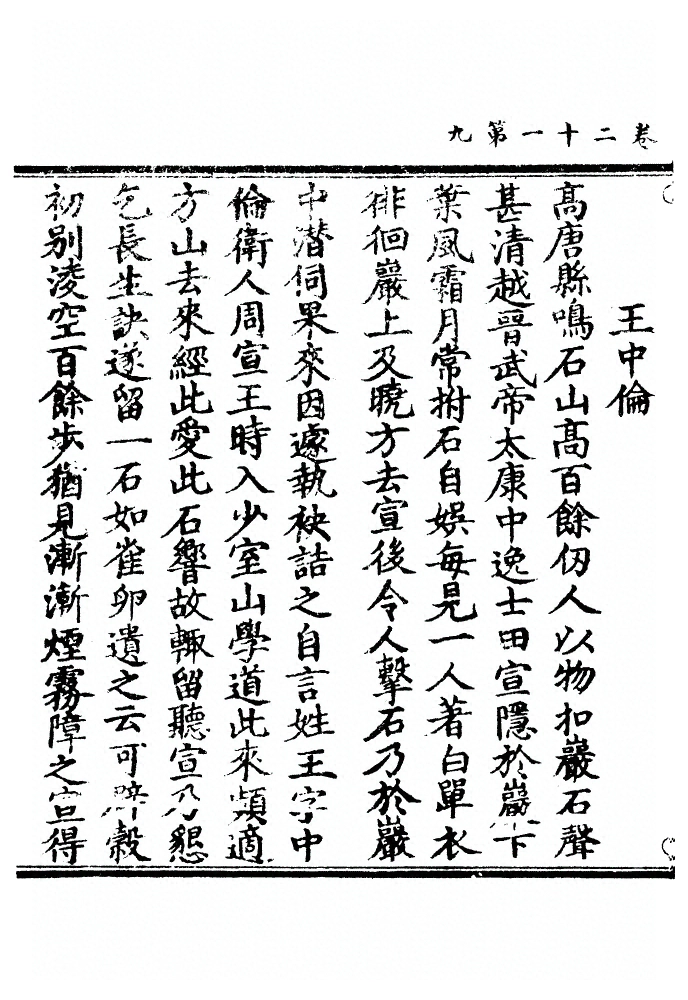 卷二十一第九
王中倫
高唐縣鳴石山高百餘仞人以物扣巖石聲
甚清越晉武帝太康中逸士田宣隱於巖下
葉風霜月常拊石自娛每見一人著白單衣
徘徊巖上及曉方去宣後令人擊石乃於巖
中潜伺果來因遽執袂詰之自言姓王字中
倫衛人周宣王時入少室山學道此來頻適
方山去來經此愛此石響故輙留聽宣乃懇
乞長生訣遂留一石如雀卵遺之云可辟穀
初别淩空百餘步猶見漸漸煙霧障之宣得